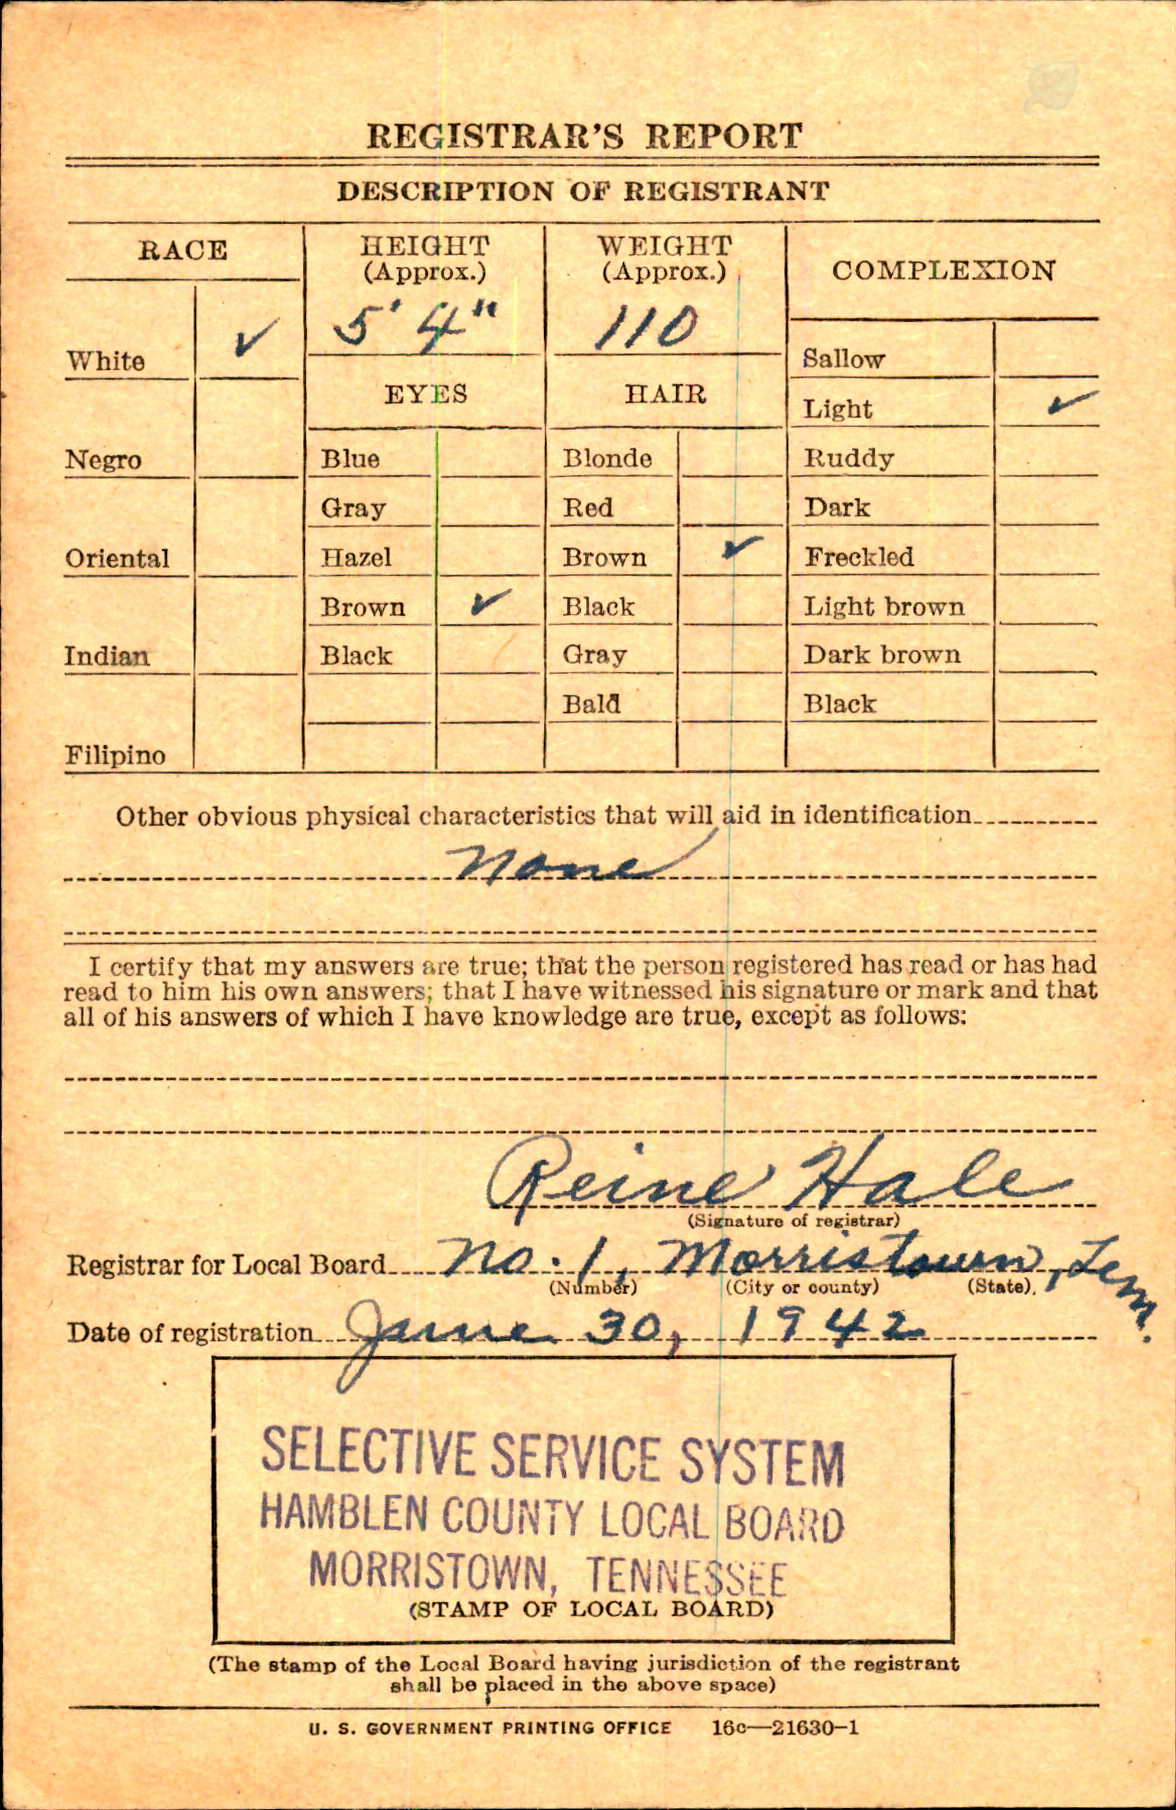 REGISTRAR'S REPORT
DESCRIPTION OF REGISTRANT
RACE
White ✓
Negro
Oriental
Indian
Filipino
HEIGHT
(Approx.)
5' 4"
WEIGHT
(Approx.)
110
EYES
Blue
Gray
Hazel
Brown ✓
Black
HAIR
Blonde
Red
Brown ✓
Black
Gray
Bald
COMPLEXION
Sallow
Light ✓
Ruddy
Dark
Freckled
Light brown
Dark brown
Black
Other obvious physical characteristics that will aid in identification
None
I certify that my answers are true; that the person registered has read or has had
read to him his own answers; that I have witnessed his signature or mark and that
all of his answers of which I have knowledge are true, except as follows:
Reine Hale
(Signature of registrar)
Registrar for Local Board No. 1, Morristown, Tenn.
(Number) (City or county) (State)
Date of registration June 30, 1942
SELECTIVE SERVICE SYSTEM
HAMBLEN COUNTY LOCAL BOARD
MORRISTOWN, TENNESSEE
(STAMP OF LOCAL BOARD)
(The stamp of the Local Board having jurisdiction of the registrant
shall be placed in the above space)
U. S. GOVERNMENT PRINTING OFFICE 16c—21630-1